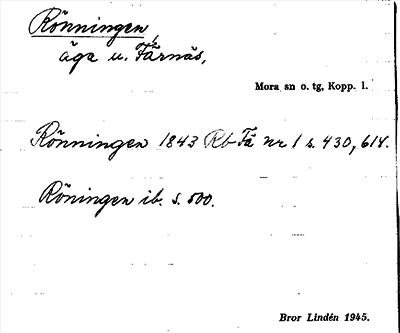 Rönningen,
äga u. Färnäs,
Mora sn o. tg, Kopp. l.
Rönningen 1843 Rb Fä nr 1 s. 430, 614.
Röningen ib. s. 500.
Bror Lindén 1945.